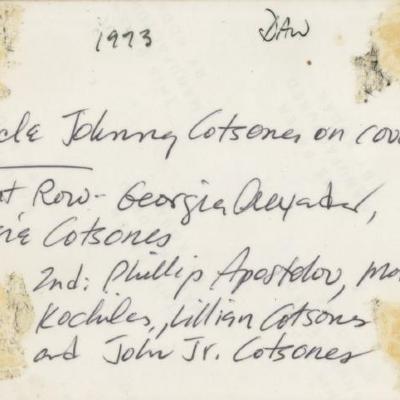 1973 DAW
cle Johnny Cotsones on cov
t Row - Georgia Alexander,
ie Cotsones
2nd: Phillip Apostolou, Ma
Kochiles, Lillian Cotsones
and John Jr. Cotsones